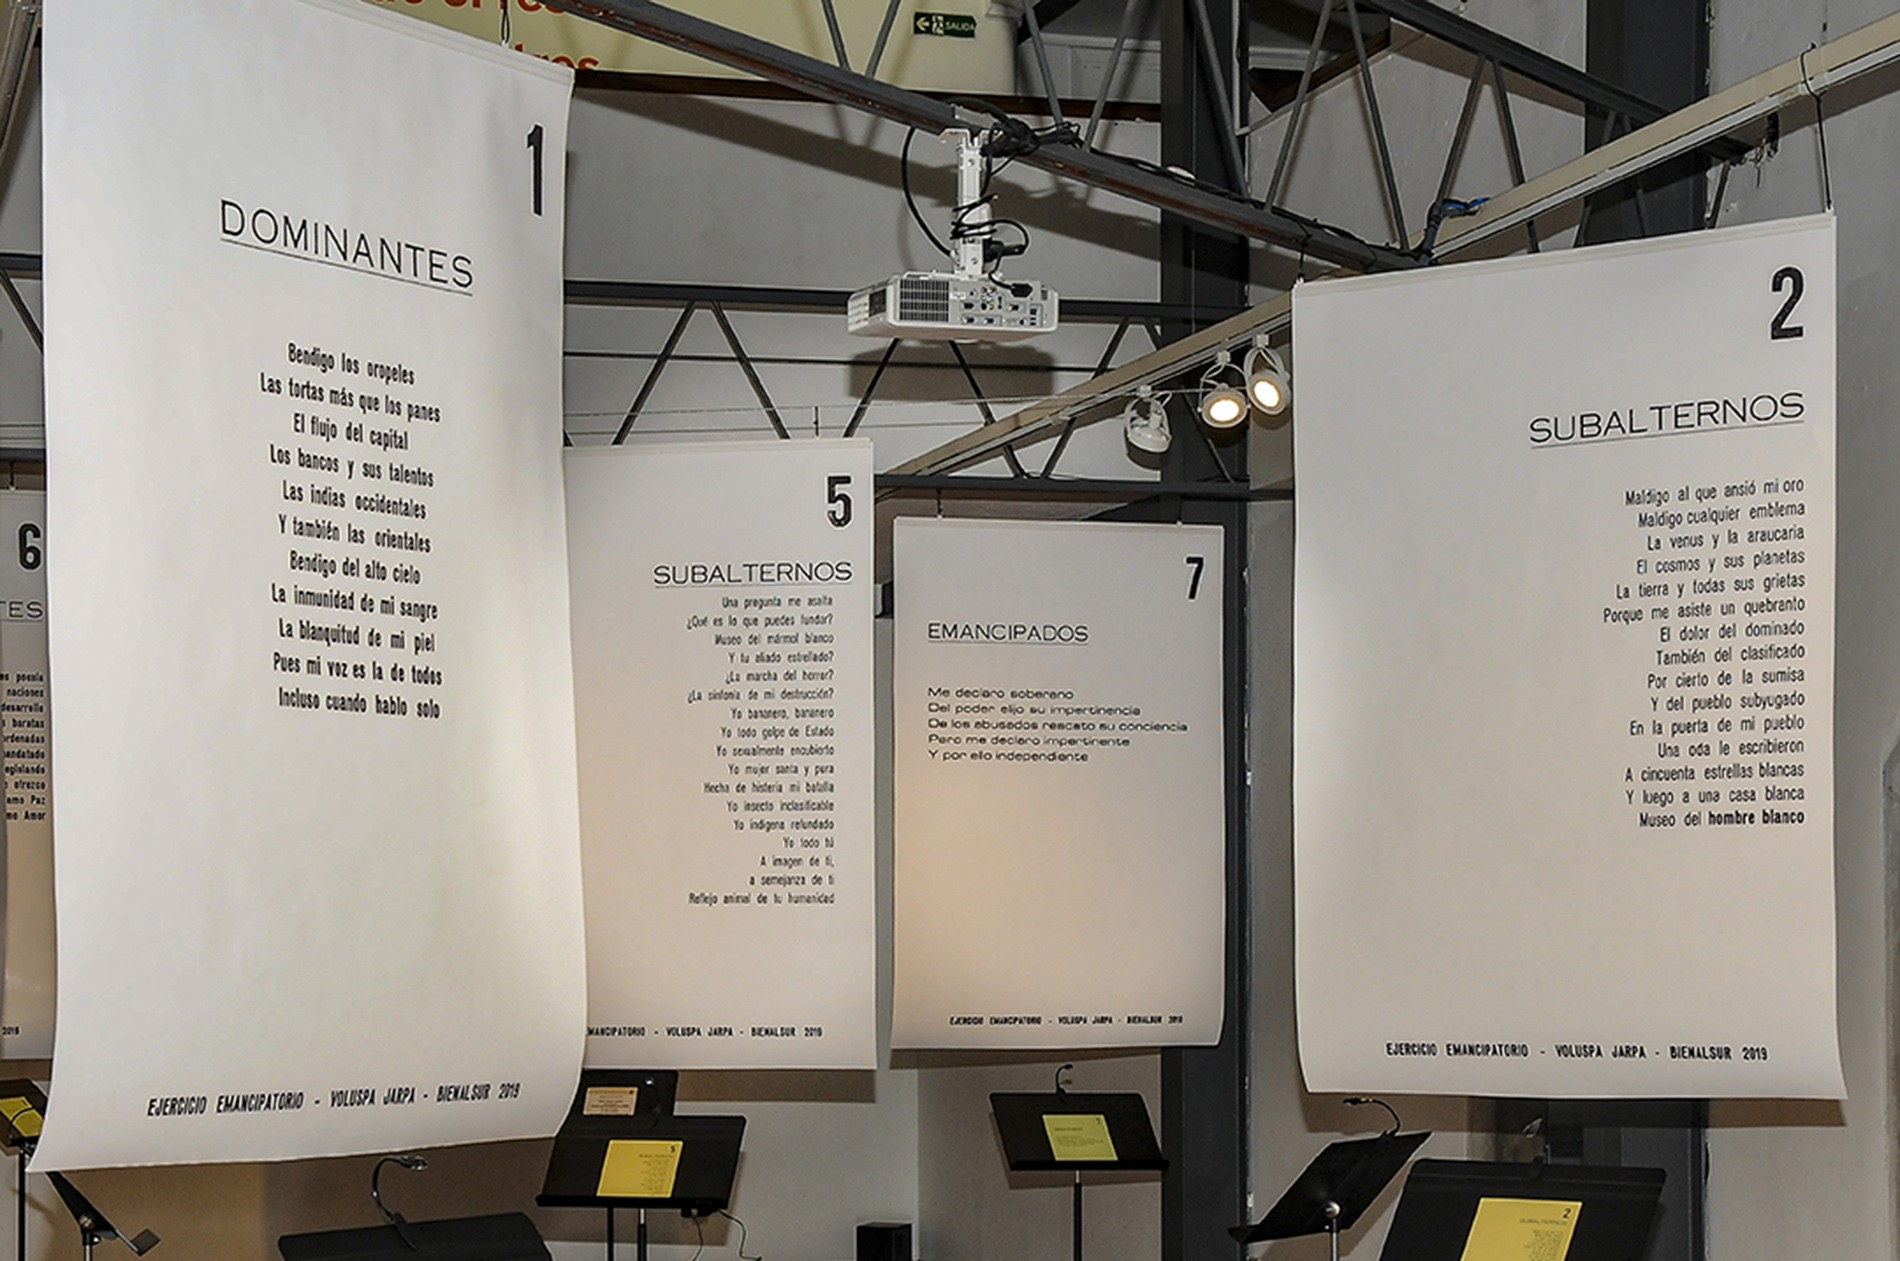 SALIDA
1
DOMINANTES
Bendigo los oropeles
Las tortas más que los panes
El flujo del capital
Los bancos y sus talentos
Las indias occidentales
Y también las orientales
Bendigo del alto cielo
La inmunidad de mi sangre
La blanquitud de mi piel
Pues mi voz es la de todos
Incluso cuando hablo solo
EJERCICIO EMANCIPATORIO - VOLUSPA JARPA - BIENALSUR 2019
6
TES
poesía
naciones
desarrollo
baratas
ordenadas
mandatado
legislando
ofrezco
amo Paz
mo Amor
2019
5
SUBALTERNOS
Una pregunta me asalta
¿Qué es lo que puedes fundar?
Museo del mármol blanco
Y tu aliado estrellado?
¿La marcha del horror?
¿La sinfonía de mi destrucción?
Yo bananero, bananero
Yo todo golpe de Estado
Yo sexualmente encubierto
Yo mujer santa y pura
Hecha de histeria mi batalla
Yo insecto inclasificable
Yo indígena refundado
Yo todo tú
A imagen de ti,
a semejanza de ti
Reflejo animal de tu humanidad
EMANCIPATORIO - VOLUSPA JARPA - BIENALSUR 2019
7
EMANCIPADOS
Me declaro soberano
Del poder elijo su impertinencia
De los abusados rescato su conciencia
Pero me declaro impertinente
Y por ello independiente
EJERCICIO EMANCIPATORIO - VOLUSPA JARPA - BIENALSUR 2019
2
SUBALTERNOS
Maldigo al que ansió mi oro
Maldigo cualquier emblema
La venus y la araucaria
El cosmos y sus planetas
La tierra y todas sus grietas
Porque me asiste un quebranto
El dolor del dominado
También del clasificado
Por cierto de la sumisa
Y del pueblo subyugado
En la puerta de mi pueblo
Una oda le escribieron
A cincuenta estrellas blancas
Y luego a una casa blanca
Museo del hombre blanco
EJERCICIO EMANCIPATORIO - VOLUSPA JARPA - BIENALSUR 2019
5
7
2
SUBALTERNOS